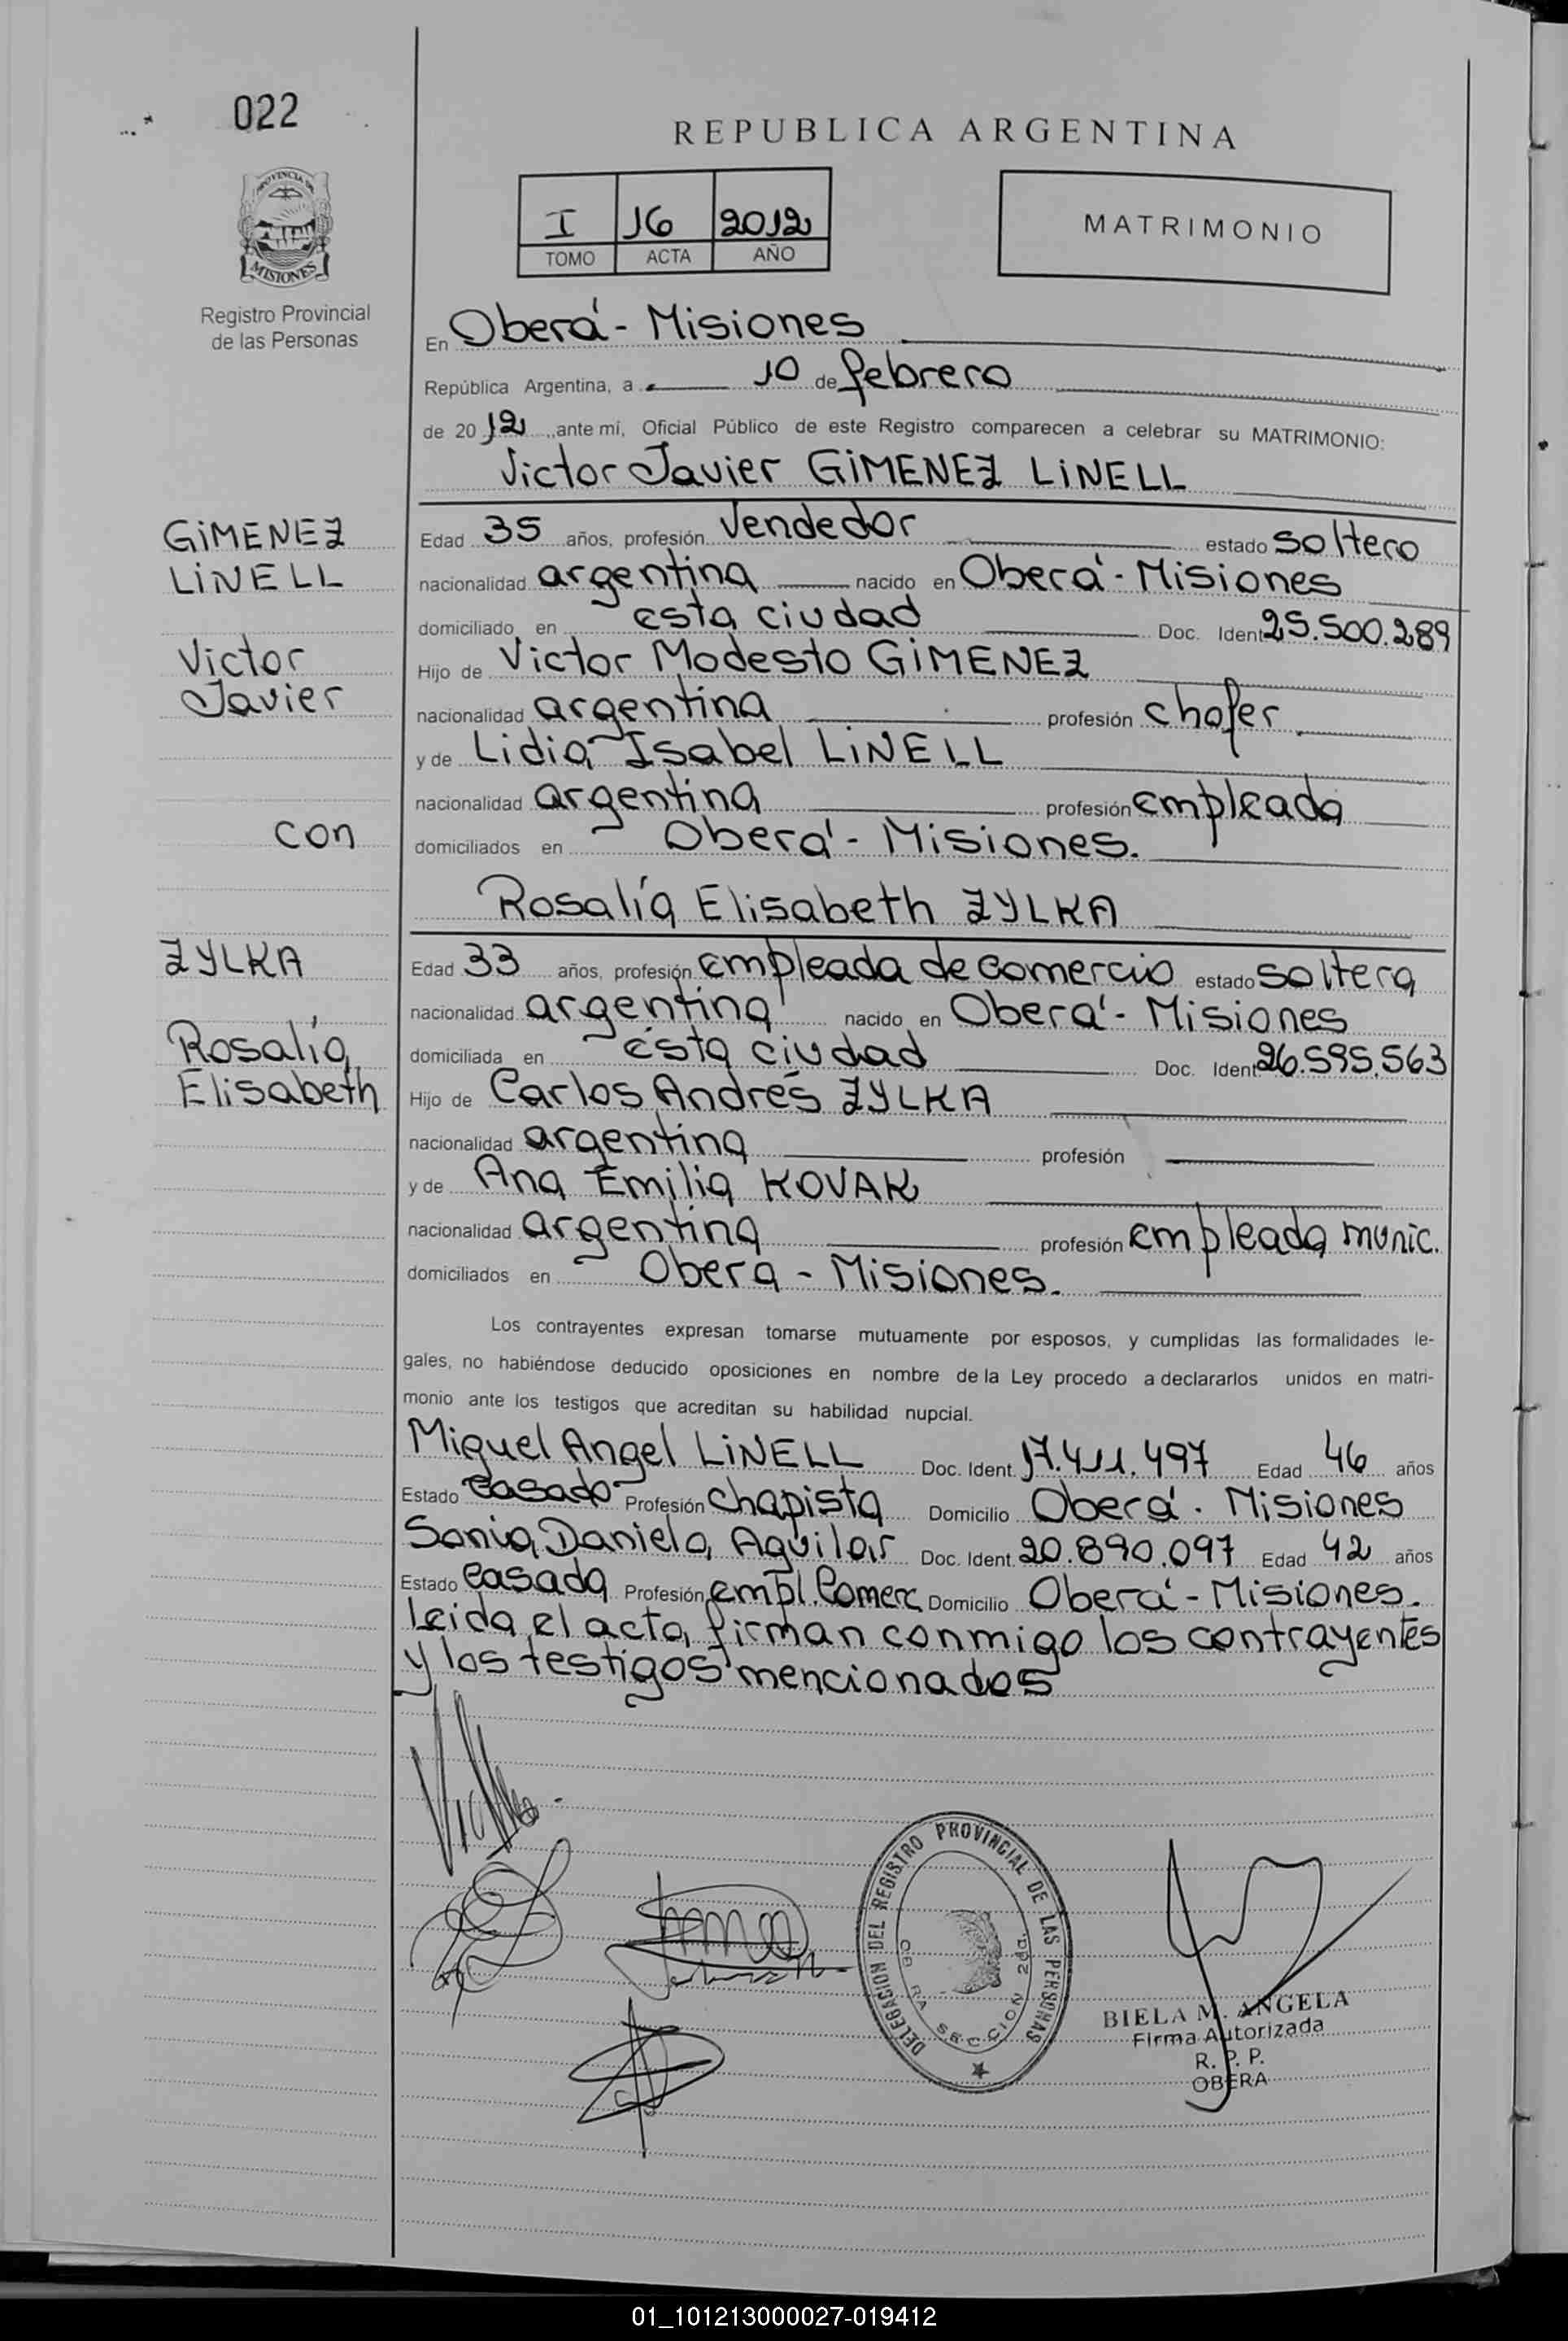 022
REPUBLICA ARGENTINA
I 16 2012
TOMO ACTA AÑO
MATRIMONIO
PROVINCIA DE
MISIONES
Registro Provincial
de las Personas
En Oberá - Misiones
República Argentina, a 10 de febrero
de 2012, ante mí, Oficial Público de este Registro comparecen a celebrar su MATRIMONIO:
Victor Javier GiMENEZ LiNELL
GiMENEZ
LiNELL
Victor
Javier
con
ZYLKA
Rosalía
Elisabeth
Edad 35 años, profesión Vendedor estado soltero
nacionalidad argentina nacido en Oberá - Misiones
domiciliado en esta ciudad Doc. Ident 25.500.289
Hijo de Victor Modesto GiMENEZ
nacionalidad argentina profesión chofer
y de Lidia Isabel LiNELL
nacionalidad argentina profesión empleada
domiciliados en Oberá - Misiones.
Rosalía Elisabeth ZYLKA
Edad 33 años, profesión empleada de comercio estado soltera
nacionalidad argentina nacido en Oberá - Misiones
domiciliada en esta ciudad Doc. Ident 26.595.563
Hijo de Carlos Andrés ZYLKA
nacionalidad argentina profesión
y de Ana Emilia KOVAK
nacionalidad argentina profesión empleada munic.
domiciliados en Obera - Misiones.
Los contrayentes expresan tomarse mutuamente por esposos, y cumplidas las formalidades le-
gales, no habiéndose deducido oposiciones en nombre de la Ley procedo a declararlos unidos en matri-
monio ante los testigos que acreditan su habilidad nupcial.
Miguel Angel LiNELL Doc. Ident. 17.411.497 Edad 46 años
Estado Casado Profesión Chapista Domicilio Oberá - Misiones
Sonia Daniela Aguilar Doc. Ident. 20.890.097 Edad 42 años
Estado Casada Profesión empl. Comerc Domicilio Oberá - Misiones.
Leida el acta, firman conmigo los contrayentes
y los testigos mencionados
DELEGACION DEL REGISTRO PROVINCIAL DE LAS PERSONAS
OB RA SECCION 2da.
BIELA M. ANGELA
Firma Autorizada
R. P. P.
OBERA
01_101213000027-019412